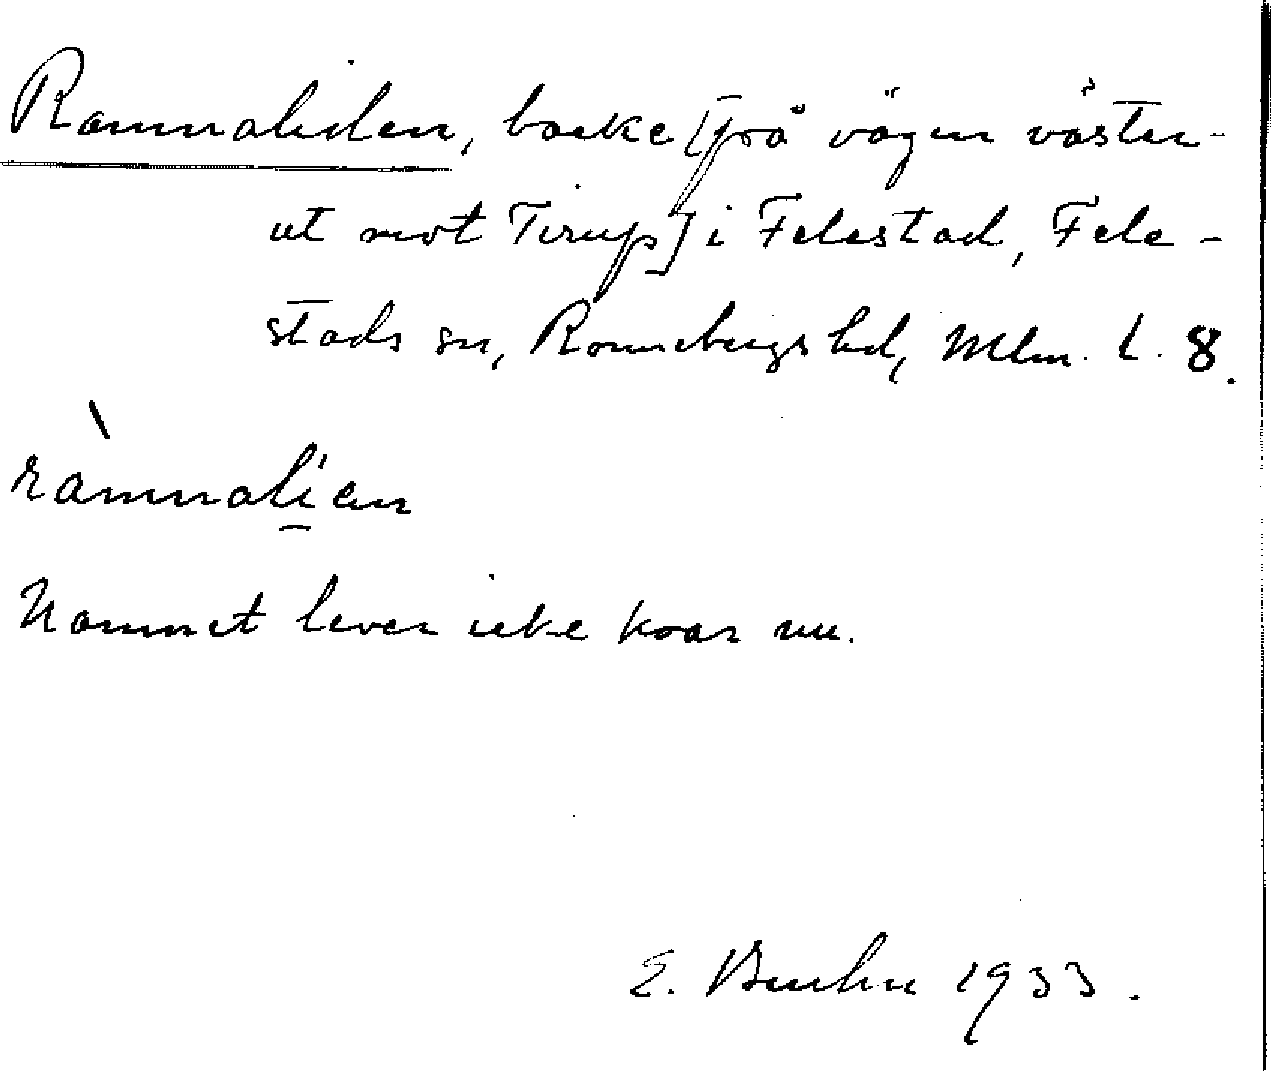 Ramnaliden, backe [på vägen väster-
ut mot Tirup] i Felestad, Fele-
stads sn, Rönnebergs hd, Mlm. L. 8.
ràmnalien
Namnet lever icke kvar nu.
E. Bruhn 1933.